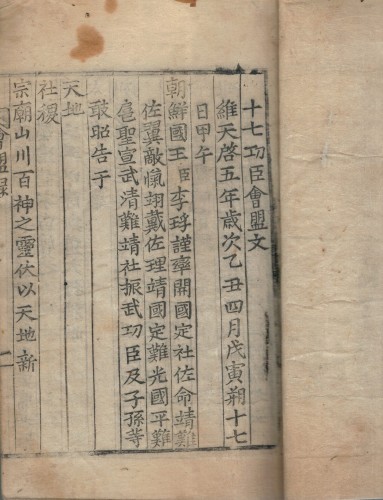 十七功臣會盟文
維天啓五年歲次乙丑四月戊寅朔十七
日甲午
朝鮮國王臣李 謹率開國定社佐命靖難
佐翼敵愾翊戴佐理靖國定難光國平難
扈聖宣武清難靖社振武功臣及子孫等
敢昭告于
天地
社稷
宗廟山川百神之靈伏以天地新
會盟錄
一